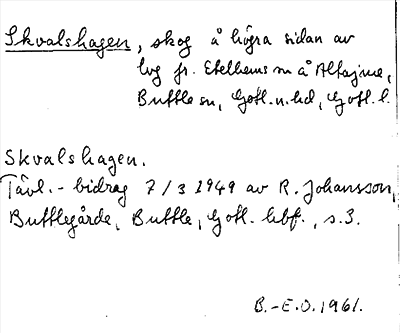 Skvalshagen, skog å högra sidan av
lvg fr. Etelhems sn å Altajme,
Buttle sn, Gotl. n. hd, Gotl. l.
Skvalshagen.
Tävl.-bidrag 7/3 1949 av R. Johansson,
Buttlegårde, Buttle, Gotl. hbf., s. 3.
B.-E.O. 1961.